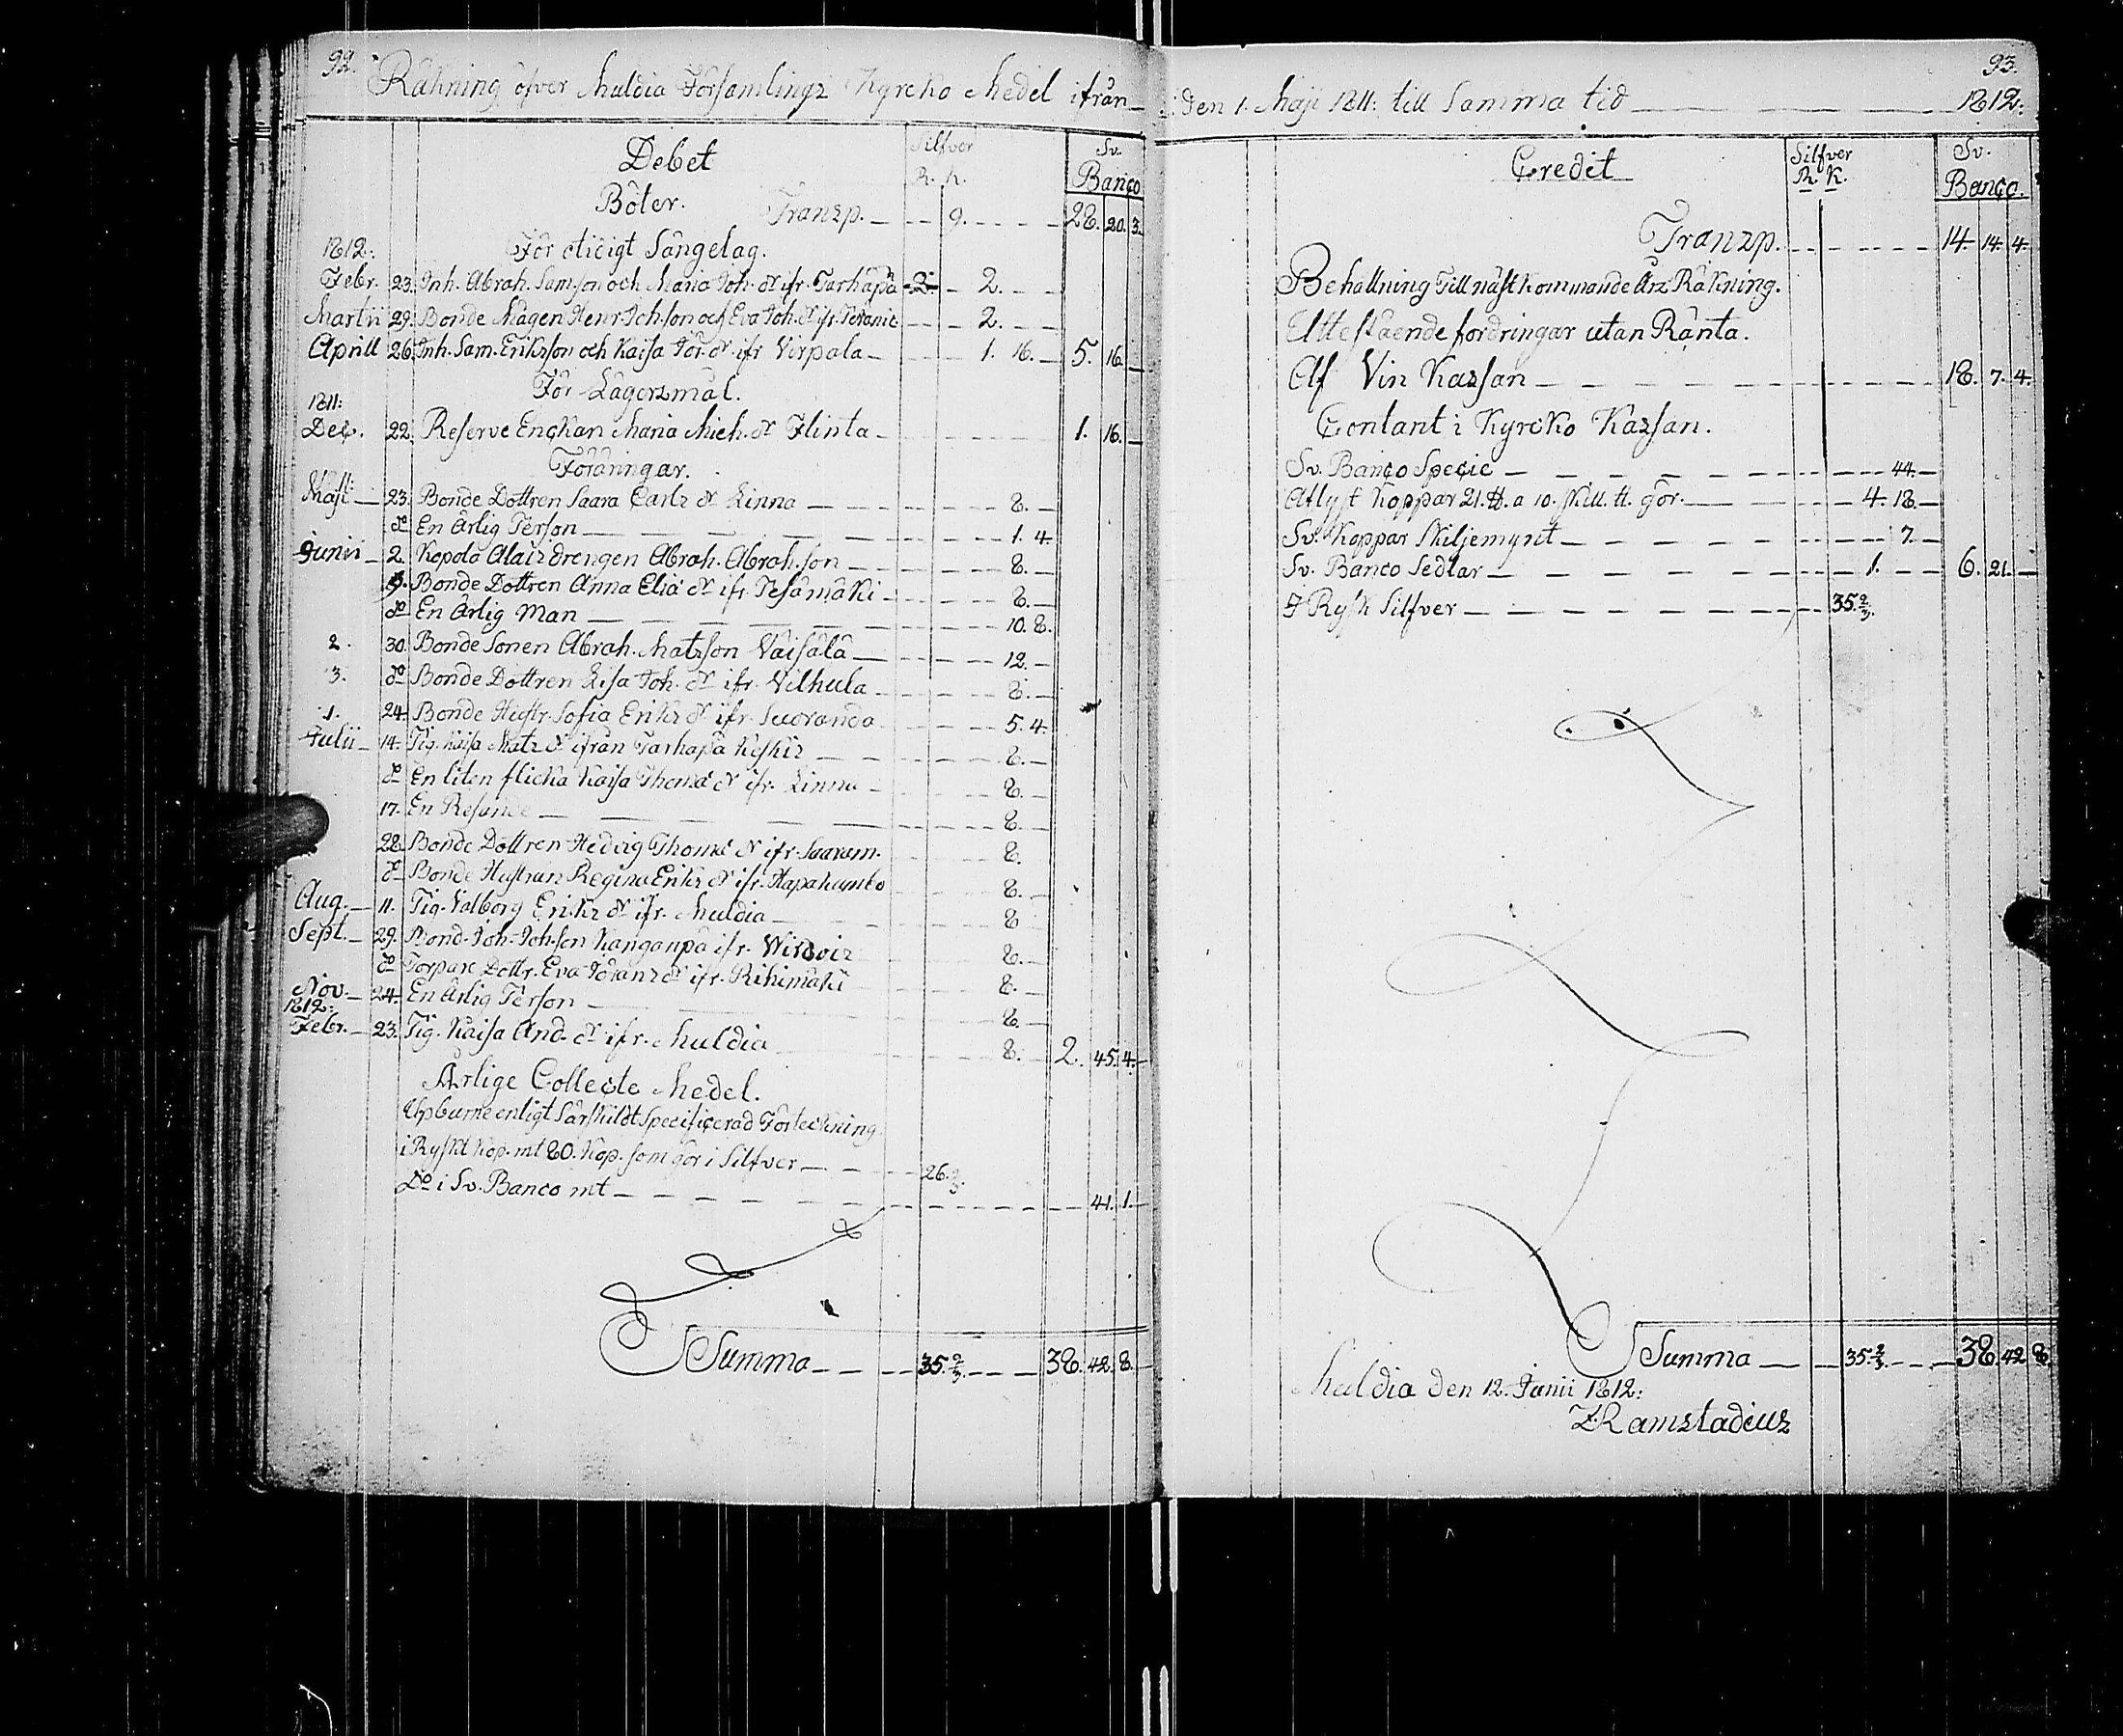 92.
Räkning öfver Muldia Församlings Kyrcko Medel ifrån
Debet
Silfver
R. K.
Sv. Banco
Böter. Transp. 9. 28. 20. 3.
1812: För otidigt Sängelag.
Febr. 23. Inh. Abrah. Samson och Maria Joh. dr ifr. Tarhapä 2.
Martii 29. Bonde Mågen Henr Johson och Eva Joh. dr ifr. 2.
Aprill 26. Inh. Sam. Erikzson och Kaisa Jör. dr ifr Virpala 1. 16. 5. 16.
För Lägersmål.
1811:
Dec. 22. Reserve Enckan Maria Mich. dr Flinta 1. 16.
Föräringar.
Maji 23. Bonde Dottren Saara Carls dr Linna 8.
do En ärlig Person 1. 4.
Junii 2. Kopola Alaiz drengen Abrah. Abrah.son 8.
9. Bonde Dottren Anna Eliæ dr ifr. Pesämäki 8.
do En ärlig Man 10. 8.
2. 30. Bonde Sonen Abrah. Matzson Vaisälä 12.
3. do Bonde Dottren Lisa Joh. dr ifr. Vilhula 8.
1. 24. Bonde Hustr. Sofia Erikz dr ifr. Suoranda 5. 4.
Julii 14. Pig. Kaisa Matz dr ifrån Tarhapä 8.
do En liten flicka Kaisa Thomæ dr ifr. Linna 8.
17. En Resande 8.
28. Bonde Dottren Hedvig Thomæ dr ifr. Saaram. 8.
do Bonde Hustrun Regina Erikz dr ifr. 8.
Aug. 11. Pig. Valborg Erikz dr ifr. Muldia 8
Sept. 29. Bond. Joh. Johson Kanganpä ifr. 8.
do Torpare Dottr. Eva Göranz dr ifr. Rihimäki 8.
Nov. 24. En ärlig Person 8.
1812:
Febr. 23. Pig. Kaisa And. dr ifr. Muldia 8. 2. 45. 4.
Årlige Collecte Medel.
Upburne enligt Särskildt Specificerad Förteckning
i Ryskt kop. mt 80. Kop. som gör i Silfver 26. 2/3.
Do i Sv. Banco mt 41. 1.
Summa 35. 2/3. 38. 42. 8.
93.
den 1. Maji 1811: till Samma tid 1812:
Credit
Silfver
R. K.
Sv. Banco.
Transp. 14. 14. 4.
Behållning Till nästkommande Års Räkning.
Uttestående fordringar utan Ränta.
Af Vin Kassan 18. 7. 4.
Contant i Kyrcko Kassan.
Sv. Banco Specie 44.
Aflyst Koppar 21. ℔. a 10. skill. ℔. gör. 4. 18.
Sv. Koppar Skiljemynt 7.
Sv. Banco Sedlar 1. 6. 21.
I Rysk Silfver 35. 2/3.
Summa 35. 2/3. 38. 42. 8.
Muldia den 12. Junii 1812:
Z. Ramstadius